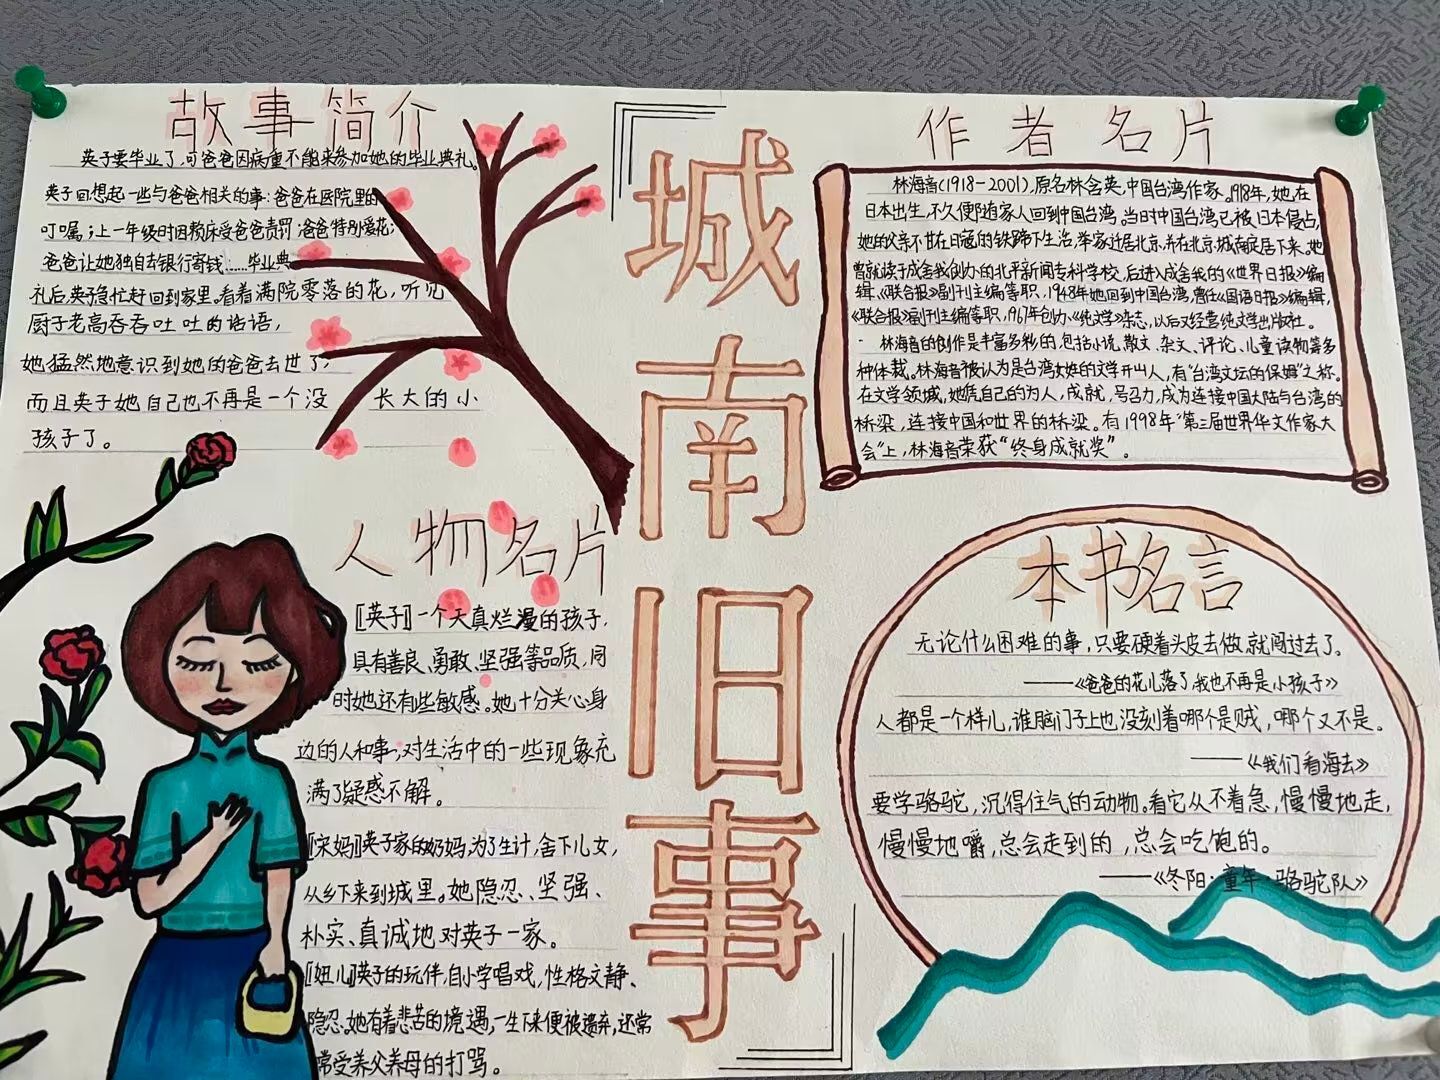 故事简介
英子要毕业了,可爸爸因病重不能来参加她的毕业典礼。
英子回想起一些与爸爸相关的事:爸爸在医院里的
叮嘱;上一年级时因赖床受爸爸责罚;爸爸特别爱花;
爸爸让她独自去银行寄钱……毕业典
礼后,英子急忙赶回到家里。看着满院零落的花,听见
厨子老高吞吞吐吐的话语,
她猛然地意识到她的爸爸去世了,
而且英子她自己也不再是一个没长大的小
孩子了。
城南旧事
作者名片
林海音(1918-2001),原名林含英,中国台湾作家。1918年,她在
日本出生,不久便随家人回到中国台湾。当时中国台湾已被日本侵占,
她的父亲不甘在日寇的铁蹄下生活,举家迁居北京,并在北京城南定居下来。她
曾就读于成舍我创办的北平新闻专科学校,后进入成舍我的《世界日报》编
辑、《联合报》副刊主编等职,1948年她回到中国台湾,曾任《国语日报》编辑,
《联合报》副刊主编等职,1967年创办《纯文学》杂志,以后又经营纯文学出版社。
林海音的创作是丰富多彩的,包括小说、散文、杂文、评论、儿童读物等多
种体裁。林海音被认为是台湾女性的文学开山人,有"台湾文坛的保姆"之称。
在文学领域,她凭自己的为人,成就,号召力,成为连接中国大陆与台湾的
桥梁,连接中国和世界的桥梁。有1998年"第三届世界华文作家大
会"上,林海音荣获"终身成就奖"。
人物名片
[英子]一个天真烂漫的孩子,
具有善良、勇敢、坚强等品质,同
时她还有些敏感。她十分关心身
边的人和事,对生活中的一些现象充
满了疑惑不解。
[宋妈]英子家的奶妈,为了生计,舍下儿女,
从乡下来到城里。她隐忍、坚强、
朴实、真诚地对英子一家。
[妞儿]英子的玩伴,自小学唱戏,性格文静、
隐忍。她有着悲苦的境遇,一生下来便被遗弃,还常
常受养父养母的打骂。
本书名言
无论什么困难的事,只要硬着头皮去做,就闯过去了。
——《爸爸的花儿落了,我也不再是小孩子》
人都是一个样儿,谁脑门子上也没刻着哪个是贼,哪个又不是。
——《我们看海去》
要学骆驼,沉得住气的动物。看它从不着急,慢慢地走,
慢慢地嚼,总会走到的,总会吃饱的。
——《冬阳·童年·骆驼队》